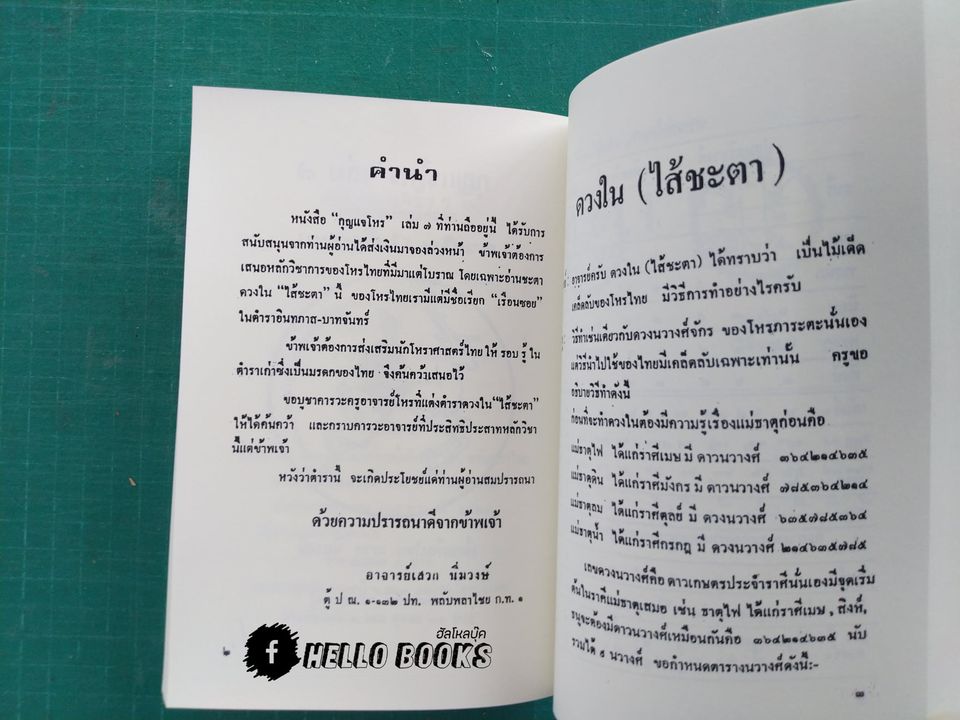 คำนำ
หนังสือ “กุญแจโหร” เล่ม ๗ ที่ท่านถืออยู่นี้ ได้รับการ
สนับสนุนจากท่านผู้อ่านได้ส่งเงินมาจองล่วงหน้า ข้าพเจ้าต้องการ
เสนอหลักวิชาการของโหรไทยที่มีมาแต่โบราณ โดยเฉพาะอ่านชะตา
ดวงใน “ไส้ชะตา” นี้ ของโหรไทยเรามีแต่มีชื่อเรียก “เรือนซอย”
ในตำราอินทภาส-บาทจันทร์
ข้าพเจ้าต้องการส่งเสริมนักโหราศาสตร์ไทย ให้ รอบ รู้ ใน
ตำราเก่าซึ่งเป็นมรดกของไทย จึงค้นคว้าเสนอไว้
ขอบูชาคารวะครูอาจารย์โหรที่แต่งตำราดวงใน “ไส้ชะตา”
ให้ได้ค้นคว้า และกราบคารวะอาจารย์ที่ประสิทธิประสาทหลักวิชา
นี้แต่ข้าพเจ้า
หวังว่าตำรานี้ จะเกิดประโยชน์แด่ท่านผู้อ่านสมปรารถนา
ด้วยความปรารถนาดีจากข้าพเจ้า
อาจารย์เสวก นิ่มวงษ์
ตู้ ป ณ. ๑-๑๓๒ ปท. พลับพลาไชย ก.ท. ๑
๒
ฮัลโหลบุ๊ค
f HELLO BOOKS
ดวงใน (ไส้ชะตา)
: อาจารย์ครับ ดวงใน (ไส้ชะตา) ได้ทราบว่า เป็นไม้เด็ด
เคล็ดลับของโหรไทย มีวิธีการทำอย่างไรครับ
วิธีทำเช่นเดียวกับดวงนวางศ์จักร ของโหรภาระตะนั่นเอง
แต่วิธีนำไปใช้ของไทยมีเคล็ดลับเฉพาะเท่านั้น ครูขอ
อธิบายวิธีทำดังนี้
ก่อนที่จะทำดวงในต้องมีความรู้เรื่องแม่ธาตุก่อนคือ
แม่ธาตุไฟ ได้แก่ราศีเมษ มี ดาวนวางศ์ ๓๖๔๒๑๔๖๓๕
แม่ธาตุดิน ได้แก่ราศีมังกร มี ดาวนวางศ์ ๗๘๕๓๖๔๒๑๔
แม่ธาตุลม ได้แก่ราศีตุลย์ มี ดวงนวางศ์ ๖๓๕๗๘๕๓๖๔
แม่ธาตุน้ำ ได้แก่ราศีกรกฎ มี ดวงนวางศ์ ๒๑๔๖๓๕๗๘๕
เลขดวงนวางศ์คือ ดาวเกษตรประจำราศีนั่นเองมีจุดเริ่ม
ต้นในราศีแม่ธาตุเสมอ เช่น ธาตุไฟ ได้แก่ราศีเมษ, สิงห์,
ธนูจะต้องมีดาวนวางศ์เหมือนกันคือ ๓๖๔๒๑๔๖๓๕ นับ
รวมได้ ๙ นวางศ์ ขอกำหนดตารางนวางศ์ดังนี้:-
๓